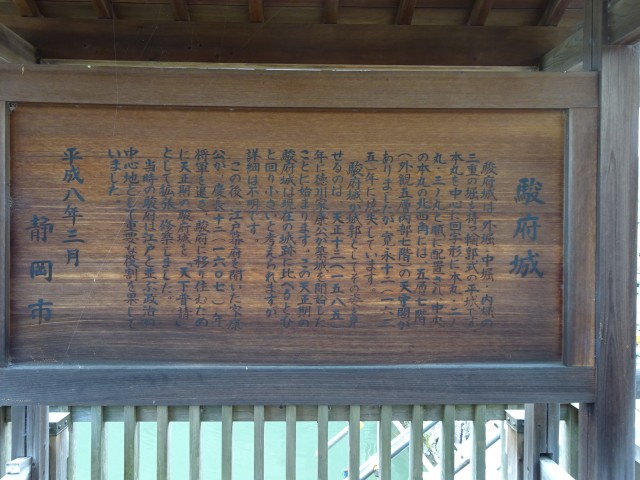 駿府城
駿府城は、外堀・中堀・内堀の
三重の堀を持つ輪郭式の平城です。
本丸を中心に回字形に本丸・二ノ
丸・三ノ丸と順に配置され、中央
の本丸の北西隅には、五層七階
(外観五層内部七階)の天守閣が
ありましたが、寛永十二(一六三
五)年に焼失しています。
駿府城が城郭としてその姿を見
せるのは、天正十三(一五八五)
年に徳川家康公が築城を開始した
ことに始まります。この天正期の
駿府城は現在の城跡に比べるとひ
と回り小さいと考えられますが
詳細は不明です。
この後、江戸幕府を開いた家康
公が、慶長十二(一六〇七)年
将軍を退き、駿府に移り住むため
に天正期の駿府城を「天下普請」
として拡張・修築しました。
当時の駿府は江戸と並ぶ政治の
中心地として重要な役割を果して
いました。
平成八年三月
静岡市